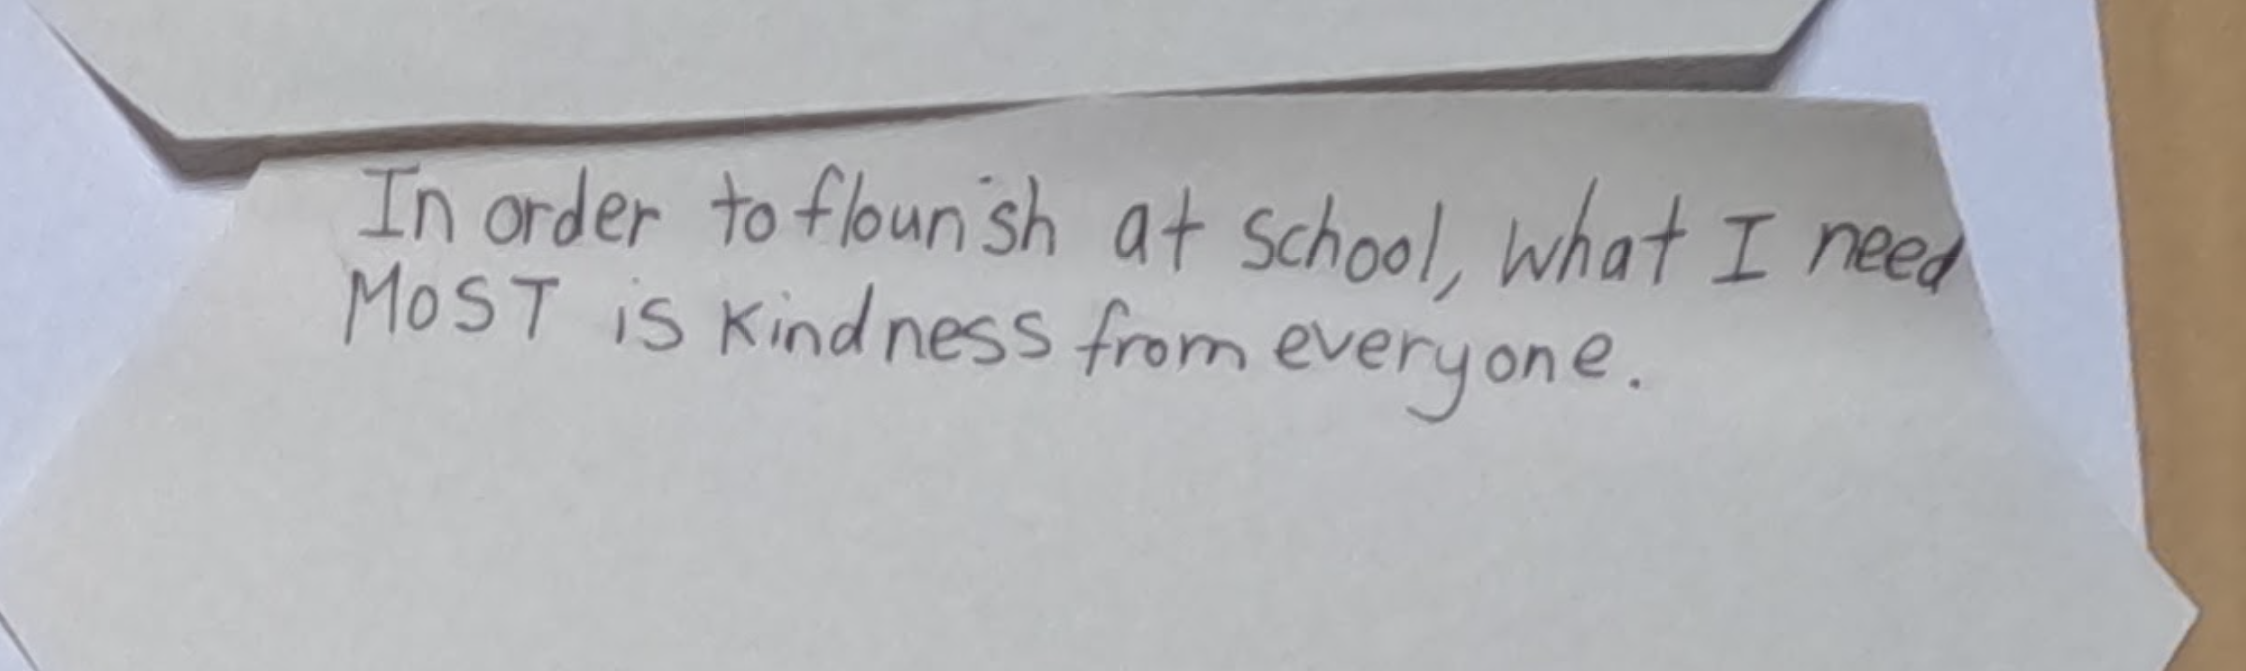 In order to flourish at school, what I need
MOST is kindness from everyone.